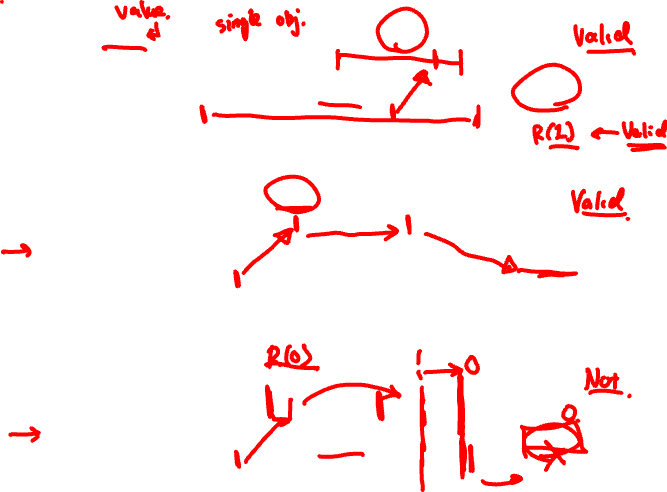 value.
single obj.
Valid
R(2) ← Valid
Valid
R(0)
0
Not.
0